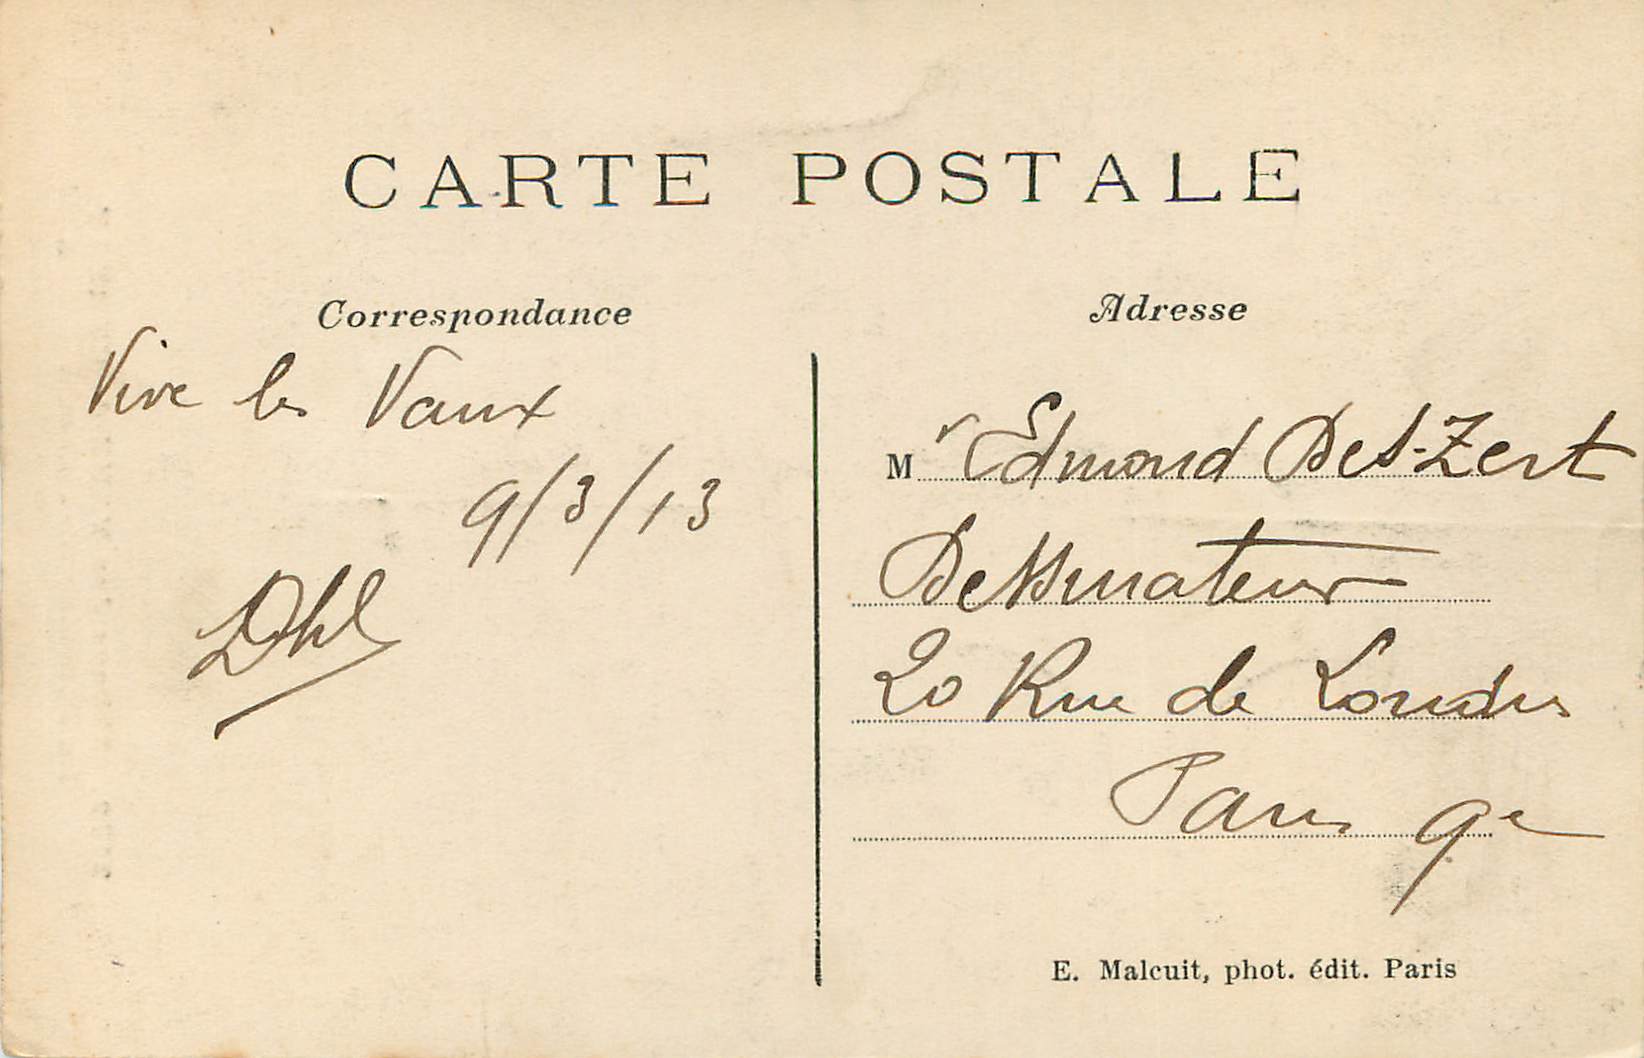 CARTE POSTALE
Correspondance
Vive les Vaux
9/3/13
Adresse
Mr Edmond Des-Zert
Dessinateur
20 Rue de Londres
Paris 9e
E. Malcuit, phot. édit. Paris